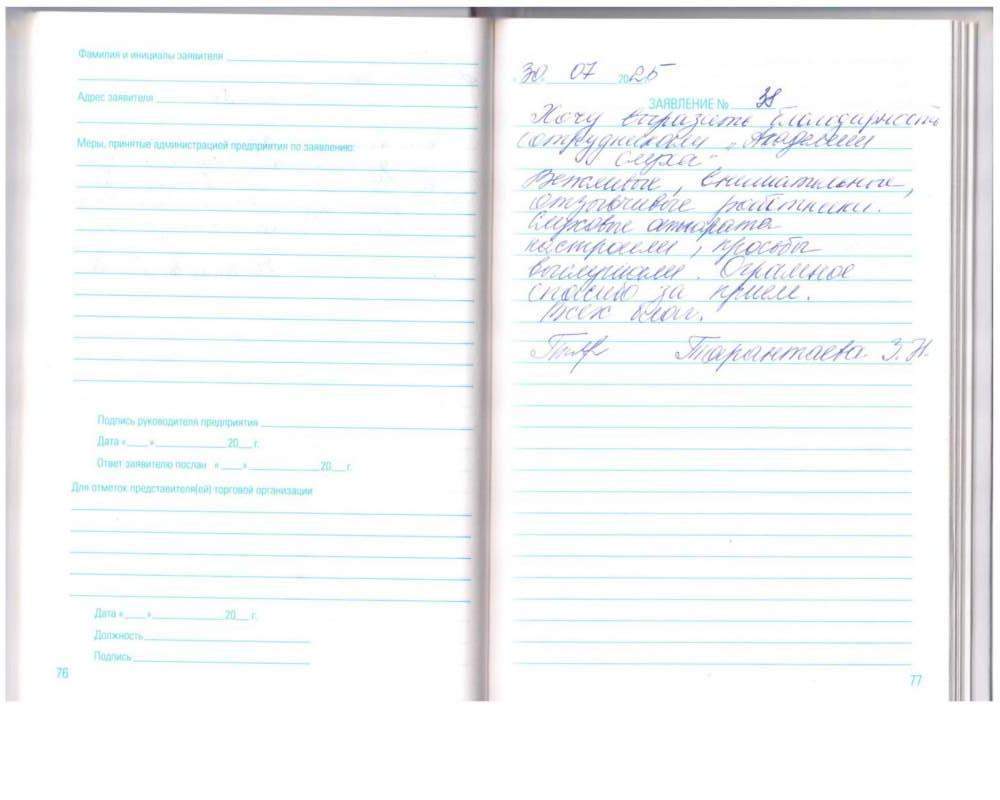 Фамилия и инициалы заявителя
Адрес заявителя
Меры, принятые администрацией предприятия по заявлению:
Подпись руководителя предприятия
Дата «____»____________20___г.
Ответ заявителю послан «____»____________20___г.
Для отметок представителя(ей) торговой организации
Дата «____»____________20___г.
Должность
Подпись
76
30. 07 2025
ЗАЯВЛЕНИЕ № 38
Хочу выразить благодарность
сотрудникам „Академии
слуха"
Вежливые, внимательные,
отзывчивые работники.
Слуховые аппарата
настроили, просьбы
выслушали. Огромное
спасибо за прием.
Всех благ.
Тарантаева З.Н.
77